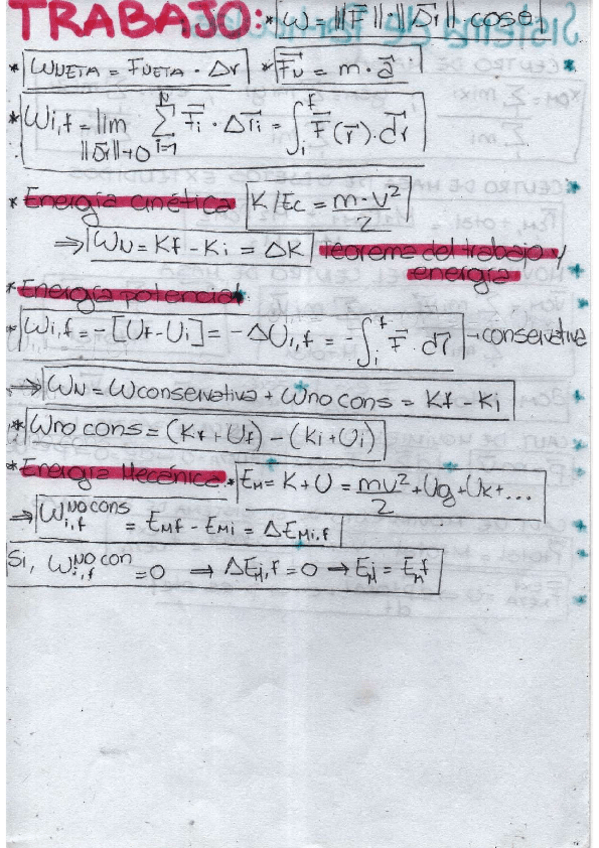 TRABAJO: * W = ||F⃗||·||Δr⃗||·cosθ
* WNETA = FNETA · Δr * F⃗N = m·a⃗
* Wi,f = lim ||Δr⃗||→0 N∑i=1 F⃗i · Δr⃗i = ∫i^f F⃗(r⃗)·dr⃗
* Energía cinética K/Ec = m·v²/2
⇒ WN = Kf - Ki = ΔK teorema del trabajo y energía
* Energía potencial *
* Wi,f = -[Uf - Ui] = -ΔUi,f = -∫i^f F⃗·dr⃗ → conservativa
⇒ WN = Wconservativa + Wno cons = Kf - Ki
* Wno cons = (Kf + Uf) - (Ki + Ui)
* Energía Mecánica * EM = K + U = mv²/2 + Ug + Uk + ...
⇒ Wi,f^NO cons = EMf - EMi = ΔEMi,f
Si, Wi,f^NO con = 0 → ΔEMi,f = 0 → EMi = EMf